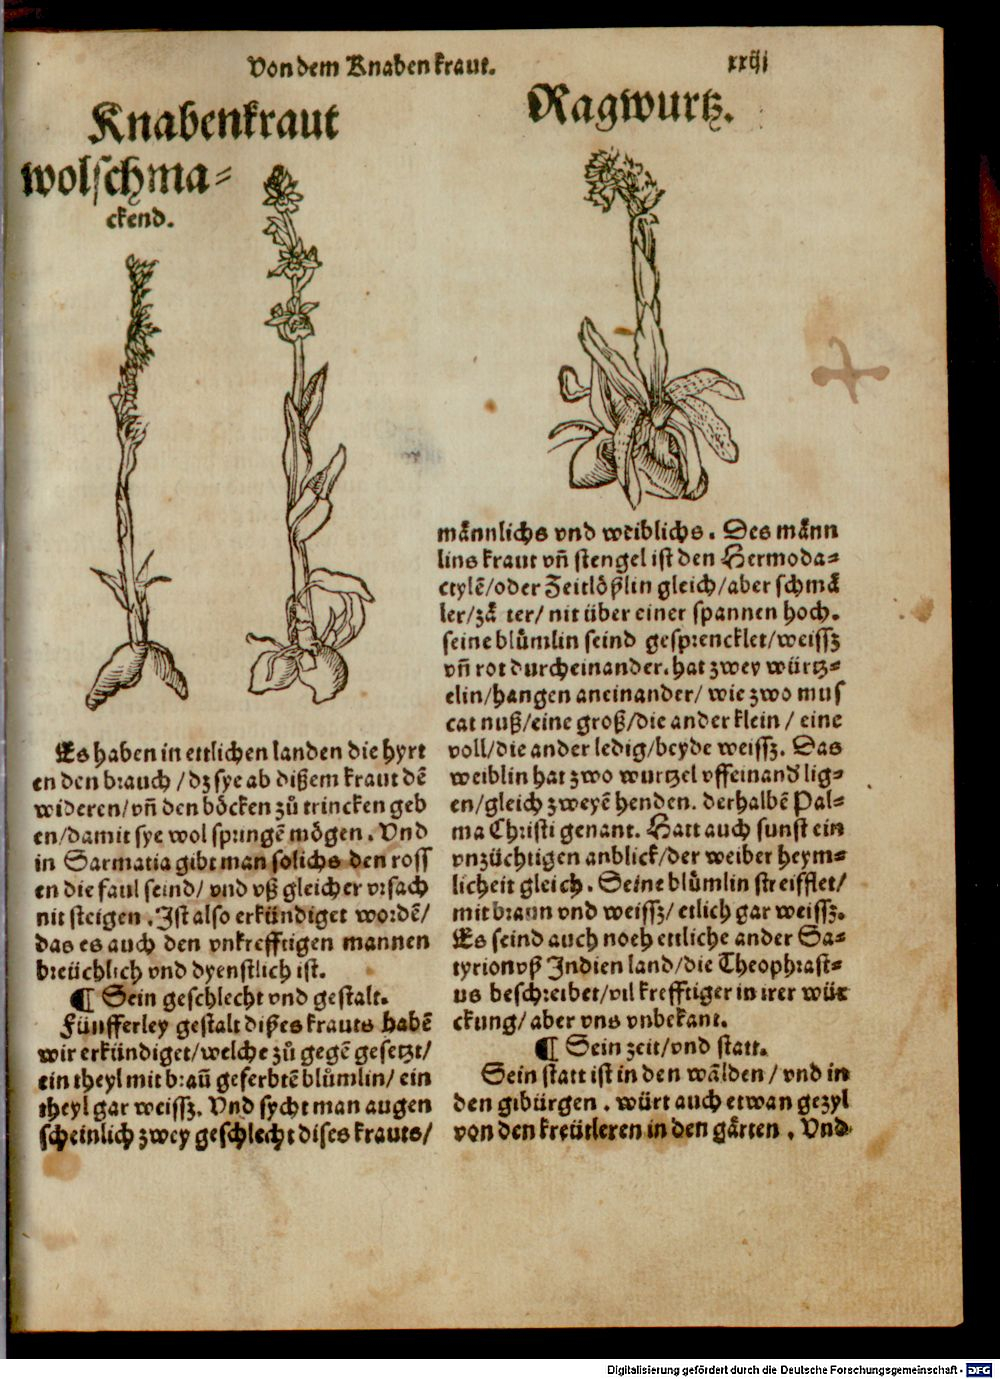 Von dem Knaben kraut.
xxiij
Knabenkraut
wolſchma⸗
ckend.
Es haben in ettlichen landen die hyrt
en den brauch / dz ſye ab dißem kraut dē
wideren/ vñ den böcken zů trincken geb
en/damit ſye wol ſpringē mögen. Vnd
in Sarmatia gibt man ſolichs den roſſ
en die faul ſeind/ vnd vß gleicher vrſach
nit ſteigen. Iſt alſo erkündiget wordē/
das es auch den vnkrefftigen mannen
breüchlich vnd dyenſtlich iſt.
¶ Sein geſchlecht vnd geſtalt.
Fünfferley geſtalt dißes krauts habē
wir erkündiget/welche zů gegē geſetzt/
ein theyl mit braū geferbtē blůmlin/ ein
theyl gar weiſſz. Vnd ſycht man augen
ſcheinlich zwey geſchlecht diſes krauts/
Ragwurtz.
männlichs vnd weiblichs. Des männ
lins kraut vñ ſtengel iſt den Hermoda⸗
ctylē/oder Zeitlößlin gleich/aber ſchmä
ler/zä ter/ nit über einer ſpannen hoch.
ſeine blůmlin ſeind geſprencklet/weiſſz
vñ rot durcheinander. hat zwey würtz⸗
elin/hangen aneinander/ wie zwo muſ
cat nuß/eine groß/die ander klein / eine
voll/die ander ledig/beyde weiſſz. Das
weiblin hat zwo wurtzel vffeinand lig⸗
en/gleich zweyē henden. derhalbē Pal⸗
ma Chriſti genant. Hatt auch ſunſt ein
vnzüchtigen anblick/der weiber heym⸗
licheit gleich. Seine blůmlin ſtreifflet/
mit braun vnd weiſſz/ etlich gar weiſſz.
Es ſeind auch noch ettliche ander Sa⸗
tyrion vß Indien land/die Theophraſt⸗
us beſchreibet/vil krefftiger in irer wür
ckung/ aber vns vnbekant.
¶ Sein zeit/vnd ſtatt.
Sein ſtatt iſt in den wälden / vnd in
den gibürgen. würt auch etwan gezyl
von den kreütleren in den gärten. Vnd
Digitalisierung gefördert durch die Deutsche Forschungsgemeinschaft - DFG